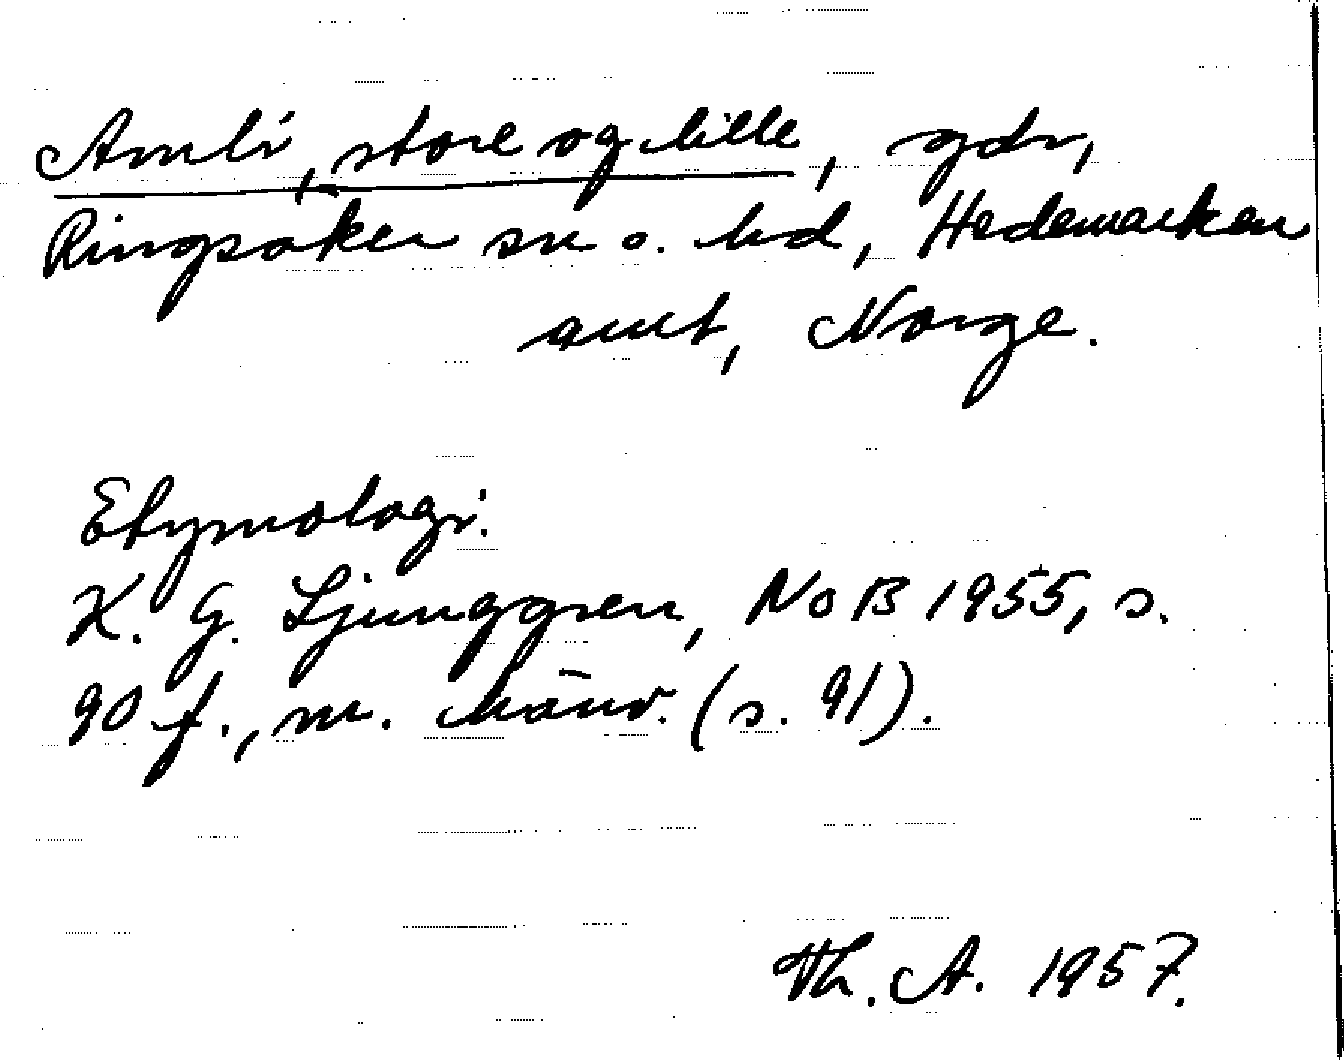 Amli, store og lille, gdr,
Ringsaker sn o. hd, Hedemarken
amt, Norge.
Etymologi:
K. G. Ljunggren, NoB 1955, s.
90 f., m. hänv. (s. 91).
Th. A. 1957.